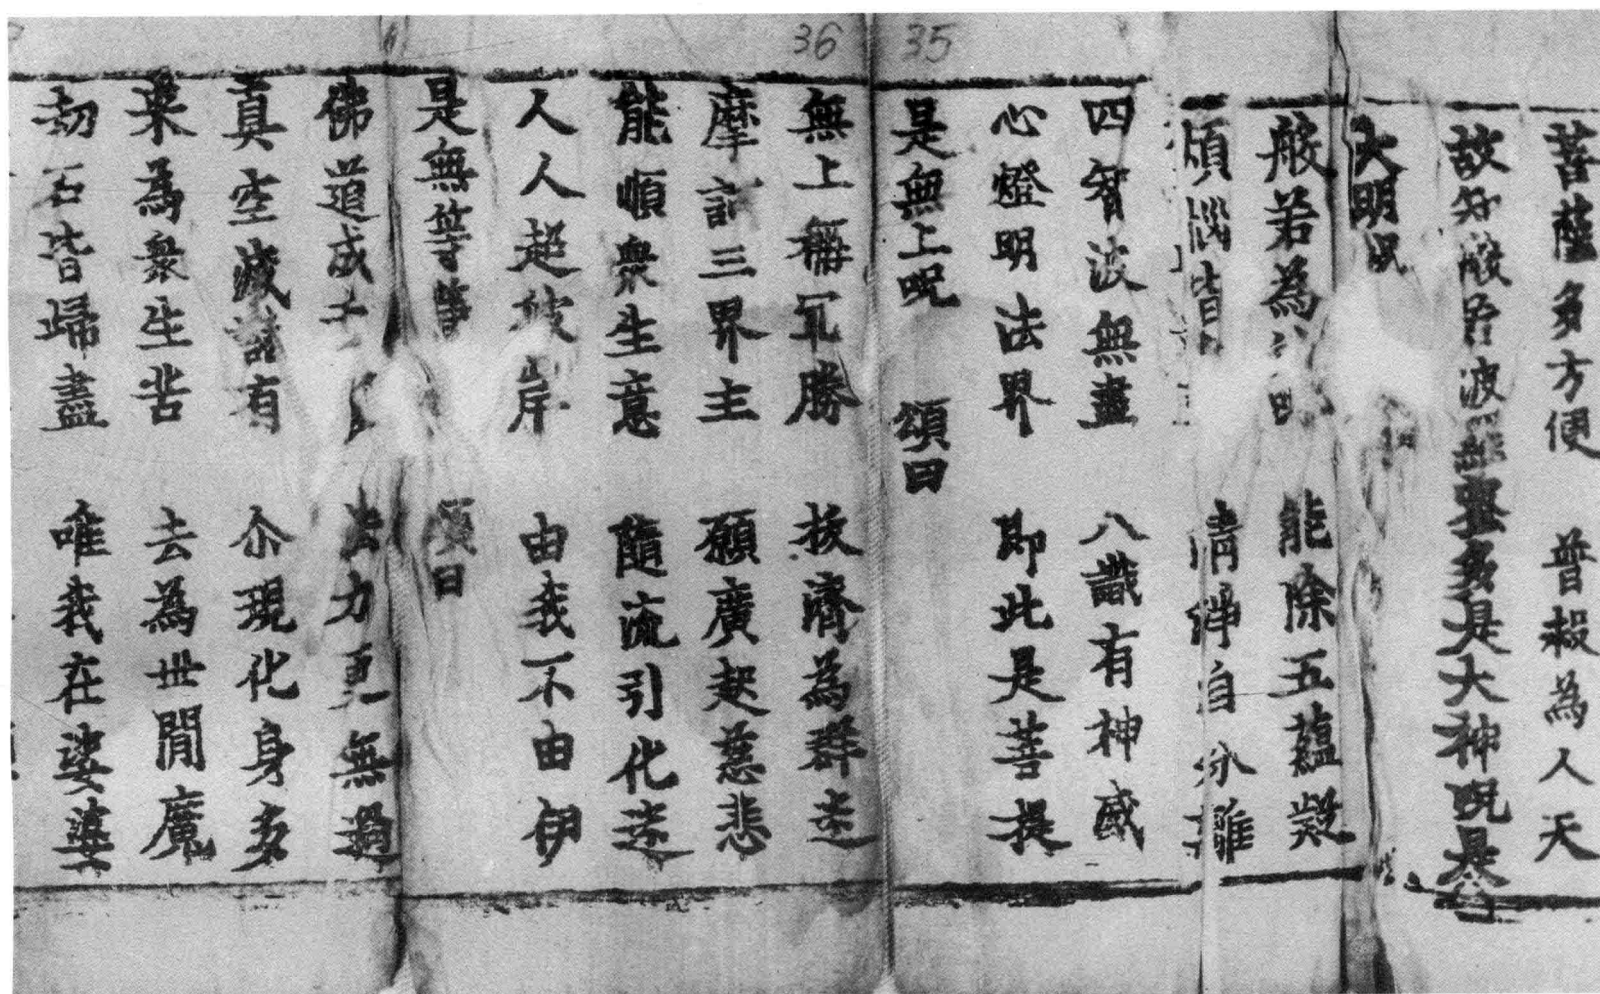 菩薩多方便 普救為人天
故知般若波羅蜜多是大神呪是
大明呪 頌曰
般若為神呪 能除五蘊疑
煩惱皆 清淨自分離
四智波無盡 八識有神威
心燈明法界 即此是菩提
是無上呪 頌曰
無上稱冣勝 拔濟為群迷
摩訶三界主 願廣起慈悲
能順衆生意 隨流引化迷
人人超彼岸 由我不由伊
是無等等 頌曰
佛道成 法力更無過
真空滅諸有 尒現化身多
来為衆生苦 去為世間魔
劫石皆歸盡 唯我在娑婆